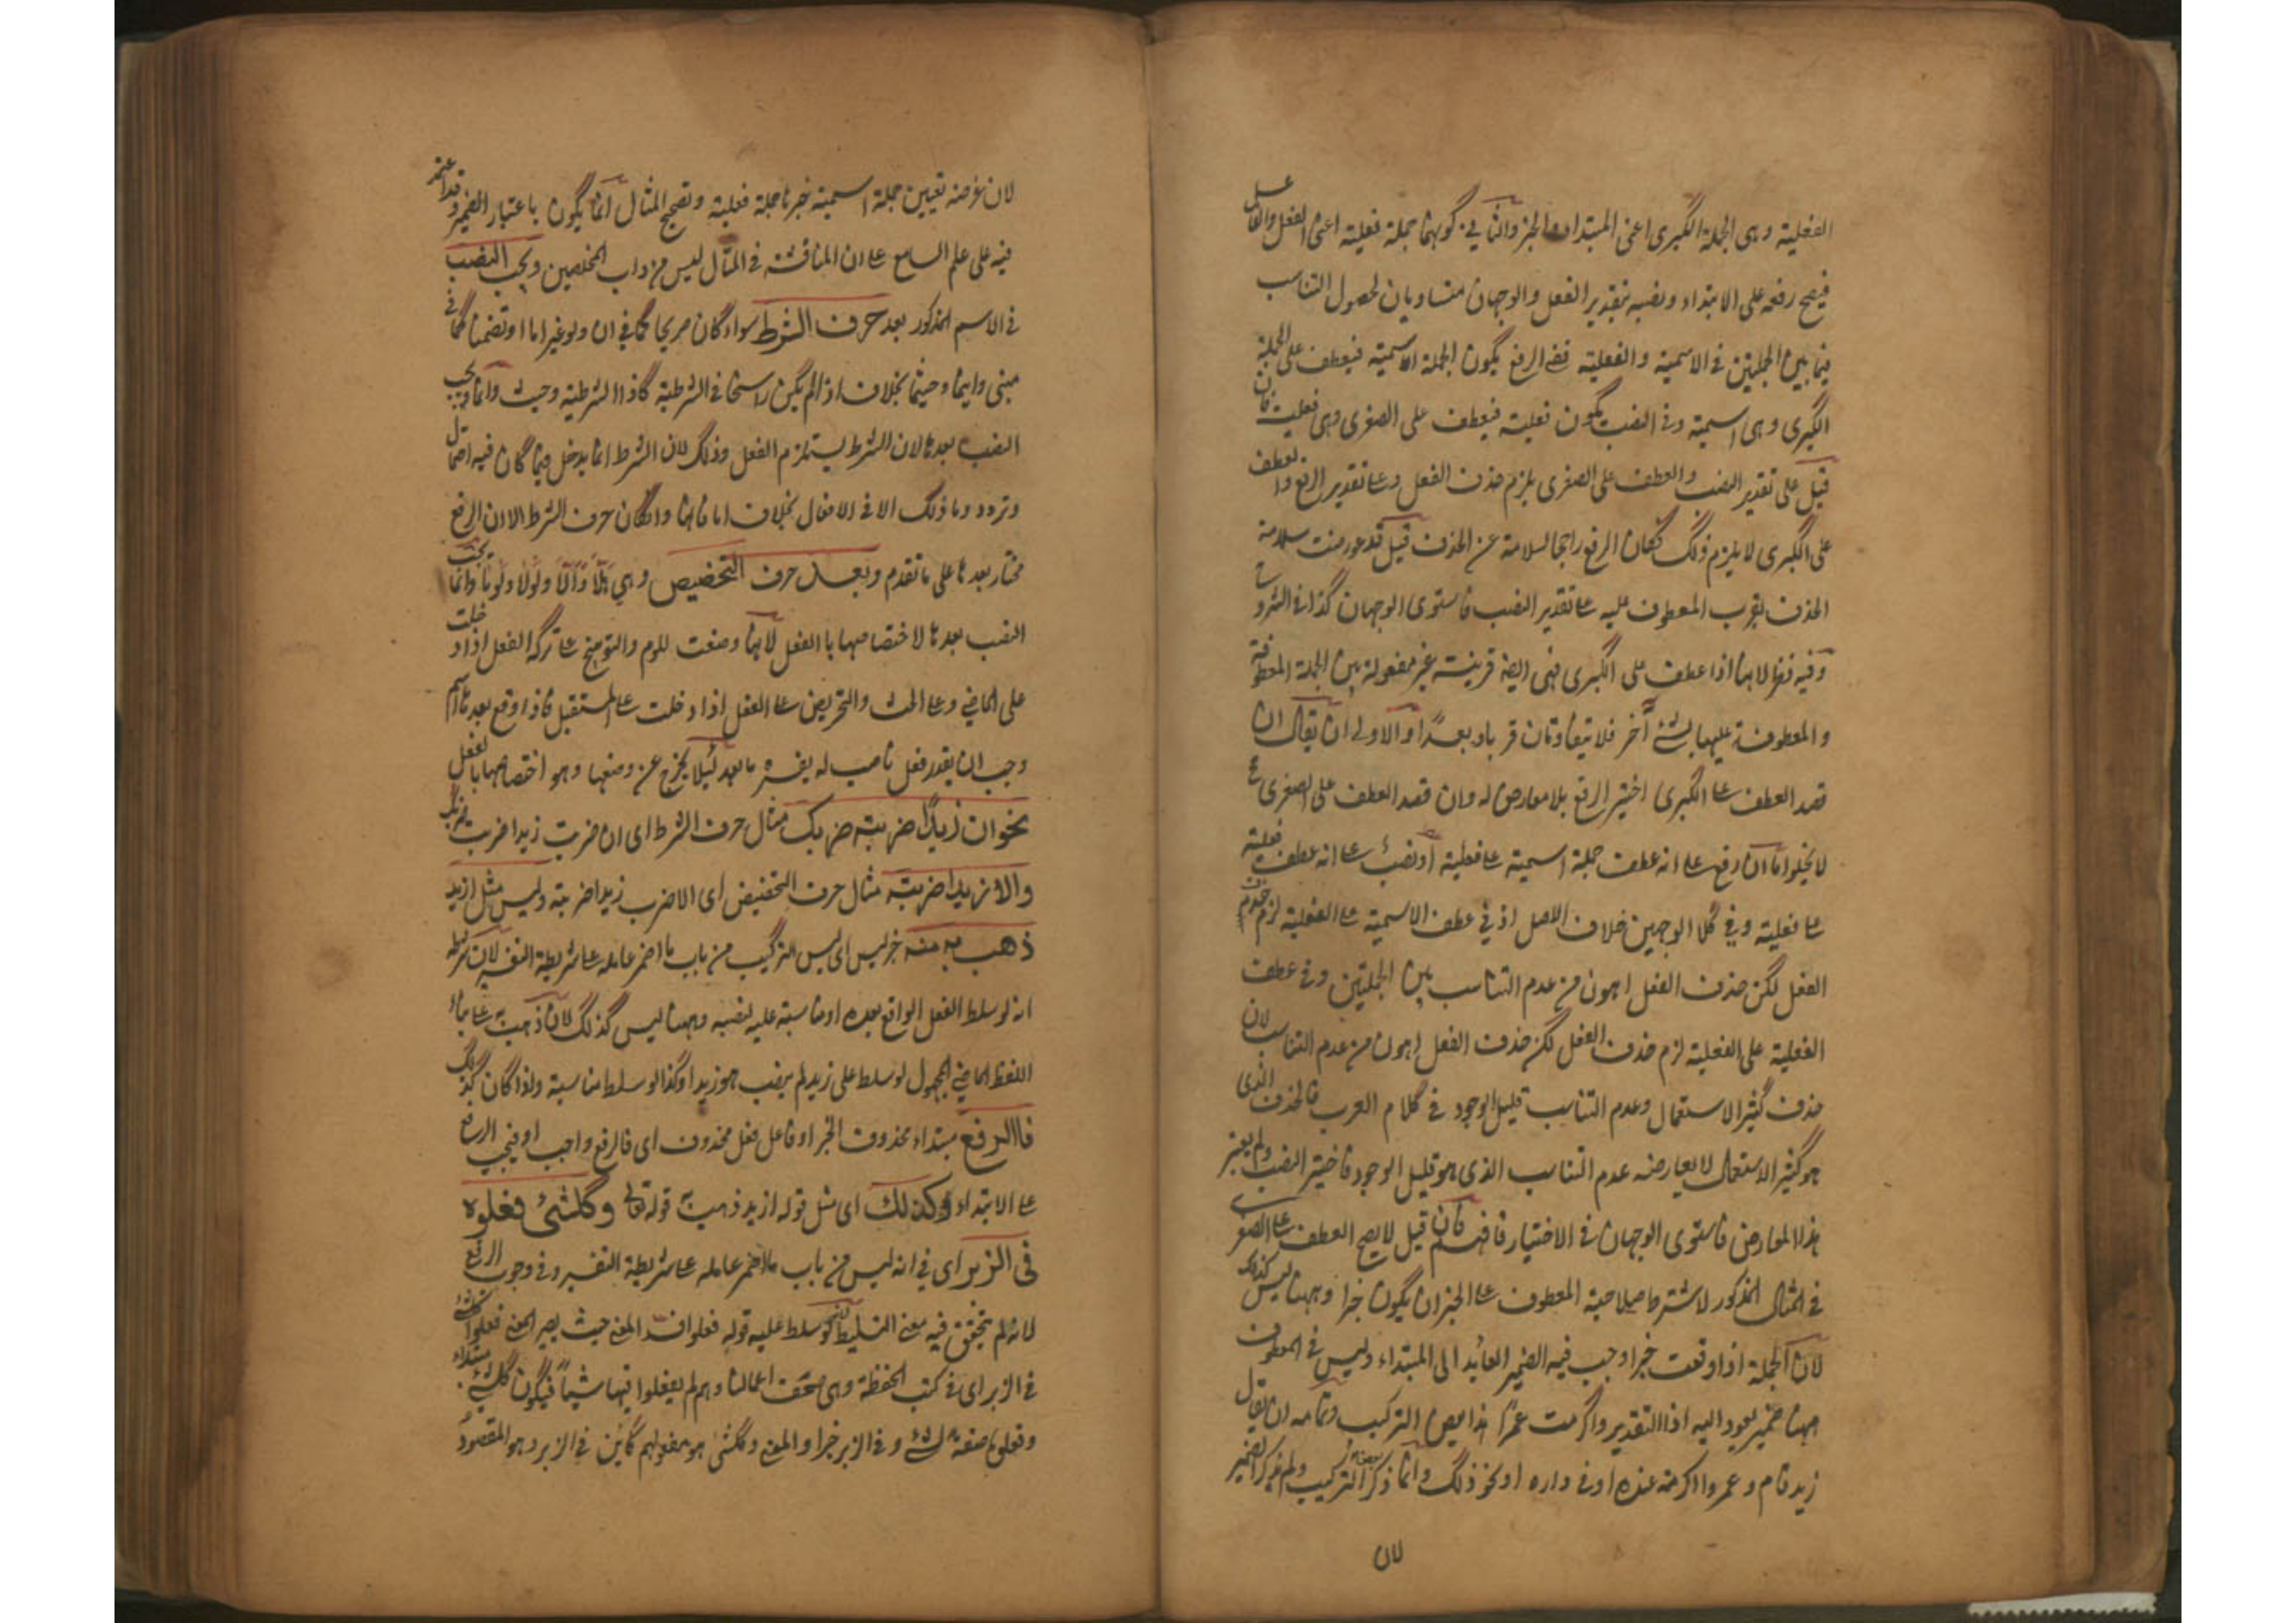 الفعلية وهى الجملة الكبرى اعنى المبتداء والخبر والثانى فى كونها جملة فعلية اعنى الفعل والفاعل
فيصح رفعه على الابتداء ونصبه بتقدير الفعل والوجهان متساويان لحصول التناسب
فيما بين الجملتين فى الاسمية والفعلية ففى الرفع يكون الجملة الاسمية فيعطف على الجملة
الكبرى وهى اسمية وفى النصب يكون فعلية فيعطف على الصغرى وهى فعلية فان
قيل على تقدير النصب والعطف على الصغرى يلزم حذف الفعل وعلى تقدير الرفع والعطف
على الكبرى لا يلزم ذلك فكان الرفع راجحا لسلامة عن الحذف قيل قد عورضت سلامة
الحذف بقرب المعطوف عليه على تقدير النصب فاستوى الوجهان كذا فى الشروح
وفيه نظر لانها اذا عطف على الكبرى فهى ايضا قرينة غير مفصولة بين الجملة المعطوفة
والمعطوفة عليها بشئ آخر فلا يتفاوتان قربا وبعدًا والاولى ان يقال ان
قصد العطف على الكبرى اختير الرفع بلا معارض له وان قصد العطف على الصغرى
لا يخلوا اما ان رفع على انه عطف جملة اسمية على فعلية او نصب على انه عطف فعلية
على فعلية وفى كلا الوجهين خلاف الاصل اذ فى عطف الاسمية على الفعلية لزم
الفعل لكن حذف الفعل اهون من عدم التناسب بين الجملتين وفى عطف
الفعلية على الفعلية لزم حذف الفعل لكن حذف الفعل اهون من عدم التناسب لان
حذف كثير الاستعمال وعدم التناسب قليل الوجود فى كلام العرب فالحذف الذى
هو كثير الاستعمال لا يعارضه عدم التناسب الذى هو قليل الوجود فاختير النصب ولم يعتبر
هذا المعارض فاستوى الوجهان فى الاختيار فافهم فان قيل لا يصح العطف على الصغرى
فى المثال المذكور لاشتراط صلاحية المعطوف على الخبر ان يكون خبرا وههنا ليس كذلك
لان الجملة اذا وقعت خبرا وجب فيه الضمير العائد الى المبتداء وليس فى المعطوف
ههنا ضمير يعود اليه اذا التقدير واكرمت عمرًا هذا التركيب وتمامه ان يقال
زيد قام وعمروا اكرمته عنده او فى داره او نحو ذلك وانما ذكر التركيب ولم يذكر الضمير
لان
لان غرضه تعيين جملة اسمية خبرها جملة فعلية وتصحيح المثال انما يكون باعتبار الضمير وقد اعتمد
فيه على علم السامع على ان المناقشة فى المثال ليس من داب المحصلين ويجب النصب
فى الاسم المذكور بعد حرف الشرط سواء كان صريحا كما فى ان ولو غير اما او تضمنا كما فى
متى واينما وحيثما بخلاف اذا لم يكن راسخا فى الشرطية كاذا الشرطية وحيث وانما وجب
النصب بعدها لان الشرط يستلزم الفعل وذلك لان الشرط انما يدخل فيما كان فيه احتمال
وتردد وما ذلك الا فى الافعال بخلاف اما فانها وان كان حرف الشرط الا ان الرفع
مختار بعدها على ما تقدم وبعد حرف التحضيض وهى هلّا وألّا ولولا ولوما وانما يجب
النصب بعدها لاختصاصها باالفعل لانها وضعت للوم والتوبيخ على تركه الفعل اذا دخلت
على الماضى وعلى الحث والتحريض على الفعل اذا دخلت على المستقبل فاذا وقع بعدها اسم
وجب ان يقدر فعل ناصب له يفسره ما بعد لئلا يخرج عن وضعها وهو اختصاصها بالفعل
نحو ان زيدًا ضربته ضربك مثال حرف الشرط اى ان ضربت زيدا ضربته ضربك
والا زيدا ضربته مثال حرف التحضيض اى الا ضرب زيدا ضربته وليس مثل ازيد
ذهب به منه خبر ليس اى ليس التركيب من باب ما اضمر عامله على شريطة التفسير لان شرطه
انه لو سلط الفعل الواقع بعده او مناسبة عليه لنصبه وههنا ليس كذلك لان ذهب به على بناء
اللفظ الماضى المجهول لو سلط على زيد لم ينصب هو زيدا وكذا لو سلط مناسبة ولذا كان كذلك
فاالرفع مبتداء محذوف الخبر او فاعل فعل محذوف اى فالرفع واجب او فيجب الرفع
على الابتداء وكذلك اى مثل قوله ازيد ذهب به قوله تعالى وكل شئ فعلوه
فى الزبر اى فى انه ليس من باب ما اضمر عامله على شريطة التفسير وفى وجوب الرفع
لانه لم يتحقق فيه معنى التسليط لانه لو سلط عليه قوله فعلوا فسد المعنى حيث يصير المعنى فعلوا كل شئ
فى الزبر اى فى كتب الحفظة وهى صحف اعمالنا وهم لم يفعلوا فيها شيئًا فيكون كل شئ مبتداء
وفعلوه صفة شئ وفى الزبر خبرا والمعنى وكل شئ هو مفعولهم كائن فى الزبر وهو المقصود